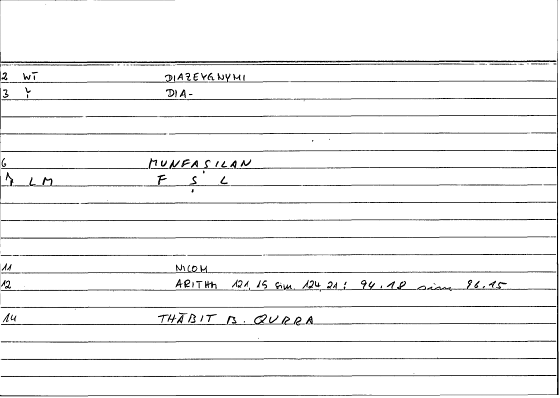 2 WT DIAZEYGNYMI
3 Y DIA-
6 MUNFAṢILAN
LM F Ṣ L
11 NICOM
12 ARITHM 121,15 sim 124,21 : 94.18 sim 96.15
14 THĀBIT B. QURRA